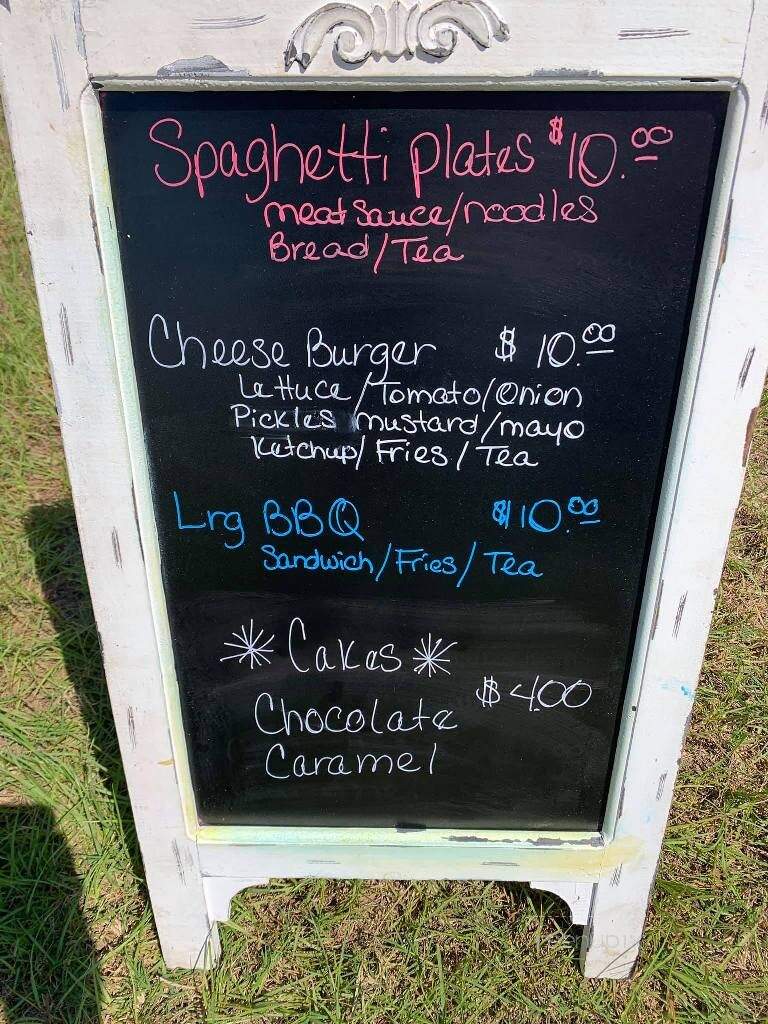 Spaghetti plates $10.00
meat sauce/noodles
Bread/Tea
Cheese Burger $10.00
Lettuce/Tomato/Onion
Pickles mustard/mayo
Ketchup/Fries/Tea
Lrg BBQ $10.00
Sandwich/Fries/Tea
Cakes
$4.00
Chocolate
Caramel